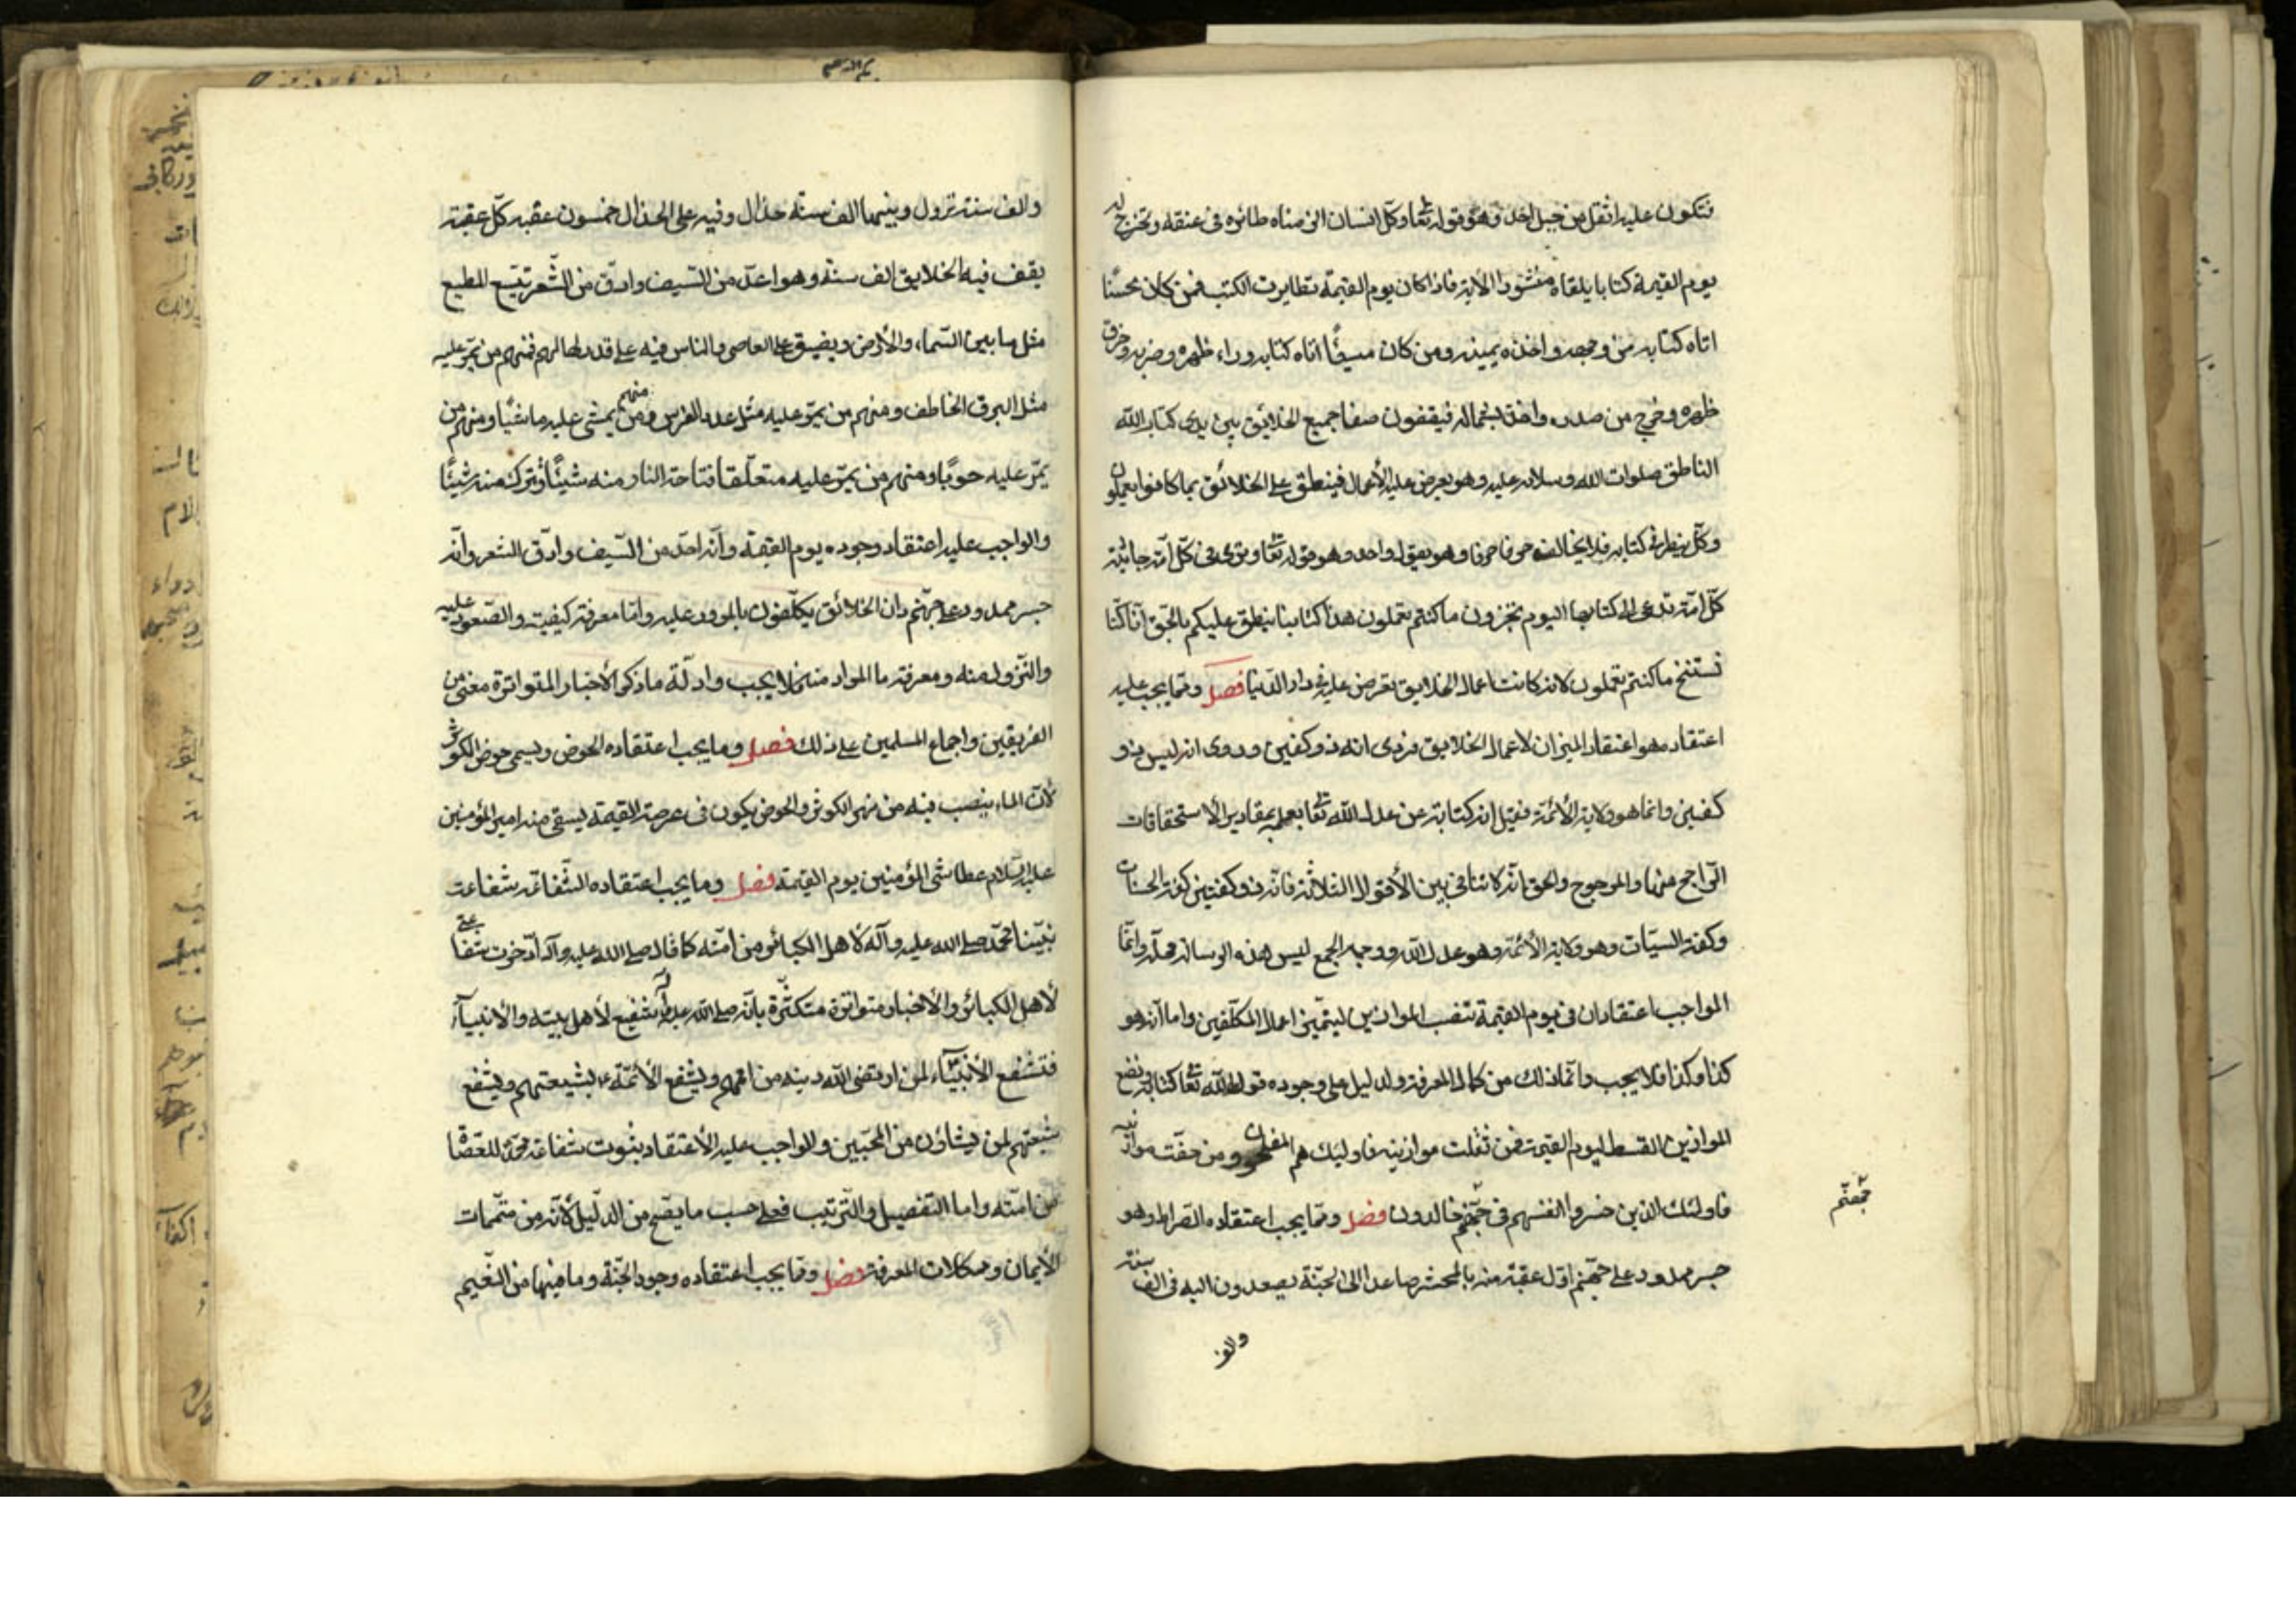 فتكون عليه اثقل من جبل احد وهو قوله تعا وكل انسان الزمناه طائره في عنقه ونخرج له
يوم القيمة كتابا يلقاه منشورا الآية فاذا كان يوم القيمة تطايرت الكتب فمن كان محسنًا
اتاه كتابه من وجهه واخذه بيمينه ومن كان مسيئًا اتاه كتابه وراء ظهره وضربه وخرق
ظهره وخرج من صدره واخذه بشماله فيقفون صفا جميع الخلايق بين يدى كتاب الله
الناطق صلوات الله وسلامه عليه وهو يعرض عليه الأعمال فينطق على الخلائق بما كانوا يعملون
وكل ينظر في كتابه فلا يخالف حرفا حرفا وهو يقول واحد وهو قوله تعا وترى كل امة جاثية
كل امة تدعى الى كتابها اليوم تجزون ما كنتم تعملون هذا كتابنا ينطق عليكم بالحق انا كنا
نستنسخ ما كنتم تعملون لانه كانت اعمال الخلايق تعرض عليه في دار الدنيا فصل ومما يجب عليه
اعتقاده هو اعتقاد الميزان لاعمال الخلايق فروى انه ذو كفتين وروى انه ليس ذو
كفتين وانما هو ولاية الأئمة وقيل انه كناية عن عدل الله تعا بعلمه بمقادير الاستحقاقات
الراجح منها والمرجوح والحق انه لا تنافى بين الأقوال الثلاثة فانه ذو كفتين كفة الحسنات
وكفة السيئات وهو ولاية الأئمة وهو عدل الله ووجه الجمع ليس هذه الرسالة محله وانما
الواجب اعتقاد ان في يوم القيمة تنصب الموازين ليتميز اعمال المكلفين واما انه هو
كذا وكذا فلا يجب وانما ذلك من كمال المعرفة والدليل على وجوده قول الله تعا في كتابه ونضع
الموازين القسط ليوم القيمة فمن ثقلت موازينه فاولئك هم المفلحون ومن خفت موازينه
فاولئك الذين خسروا انفسهم في جهنم خالدون فصل ومما يجب اعتقاده الصراط وهو
جسر ممدود على جهنم اول عقبة منه بالمحشر صاعدا الى الجنة يصعدون اليه في الف سنة
جهنم
والف
والف سنة نزول وبينهما الف سنة حذال وفيه على الحذال خمسون عقبه كل عقبة
يقف فيه الخلايق الف سنة وهو احد من السيف وادق من الشعر يتسع للمطيع
مثل ما بين السماء والأرض ويضيق على العاصى والناس فيه على قدر اعمالهم فمنهم من يمر عليه
مثل البرق الخاطف ومنهم من يمر عليه مثل عدو الفرس ومنهم من يمشى عليه ماشيًا ومنهم من
يمر عليه حبوًا ومنهم من يمر عليه متعلقا فتاخذ النار منه شيئًا وتترك منه شيئًا
والواجب عليه اعتقاد وجوده يوم القيمة وانه احد من السيف وادق من الشعر وانه
جسر ممدود على جهنم وان الخلائق يكلفون بالمرور عليه واما معرفة كيفيته والصعود عليه
والنزول منه ومعرفة ما المراد منها فلا يجب وادلة ما ذكر الأخبار المتواترة معنى من
الفريقين واجماع المسلمين على ذلك فصل ومما يجب اعتقاده الحوض ويسمى حوض الكوثر
لأن الماء ينصب فيه من نهر الكوثر والحوض يكون في عرصة القيمة يسقى منه امير المؤمنين
عليه السلام عطاشى المؤمنين يوم القيمة فصل ومما يجب اعتقاده الشفاعة شفاعة
نبينا محمد صلى الله عليه وآله لأهل الكبائر من امته كما قال صلى الله عليه وآله ادخرت شفاعتى
لأهل الكبائر والأخبار متواترة متكثرة بانه صلى الله عليه وآله يشفع لأهل بيته والأنبياء
فتشفع الأنبياء لمن ارتضى الله دينه من اممهم ويشفع الأئمة ع لشيعتهم ويشفع
شيعتهم لمن يشاؤن من المحبين والواجب عليه الأعتقاد بثبوت شفاعة محمد للعصاة
من امته واما التفصيل والترتيب فعلى حسب ما يصح من الدليل لأنه من متممات
الأيمان ومكملات المعرفة فصل ومما يجب اعتقاده وجود الجنة وما فيها من النعيم